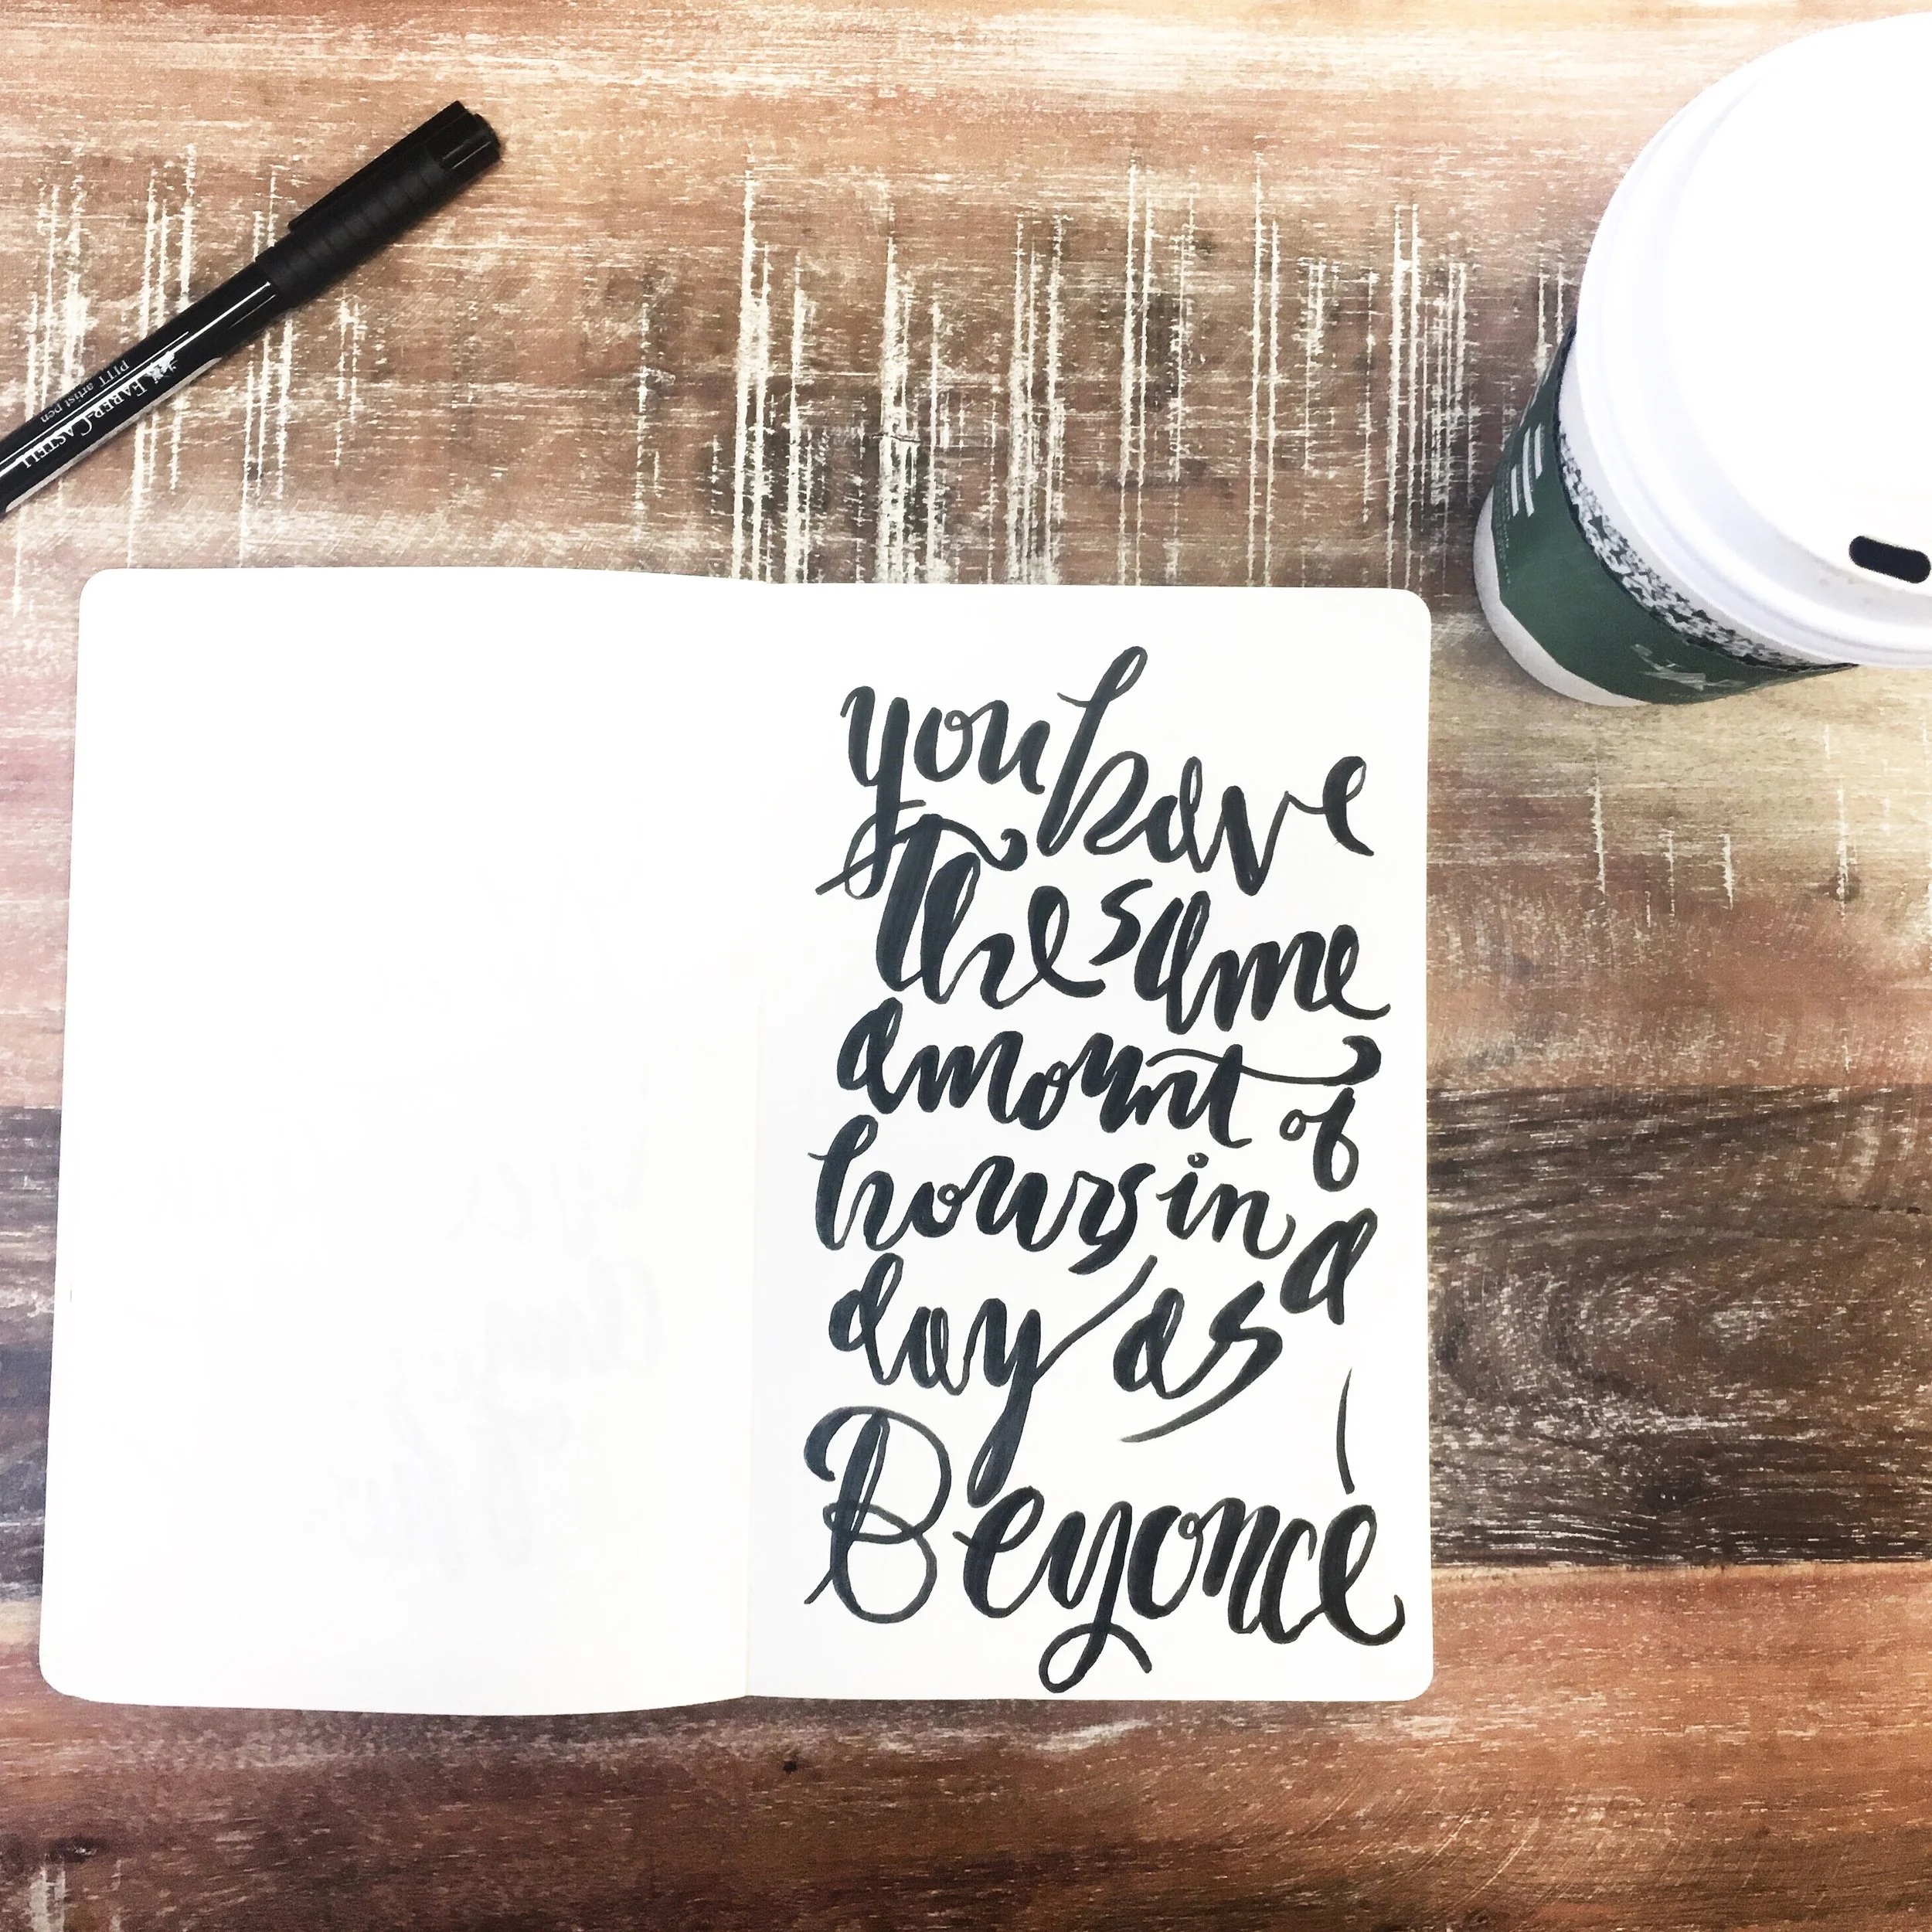 FABER-CASTELL
PITT artist pen
you have
the same
amount of
hours in a
day as
Beyoncé